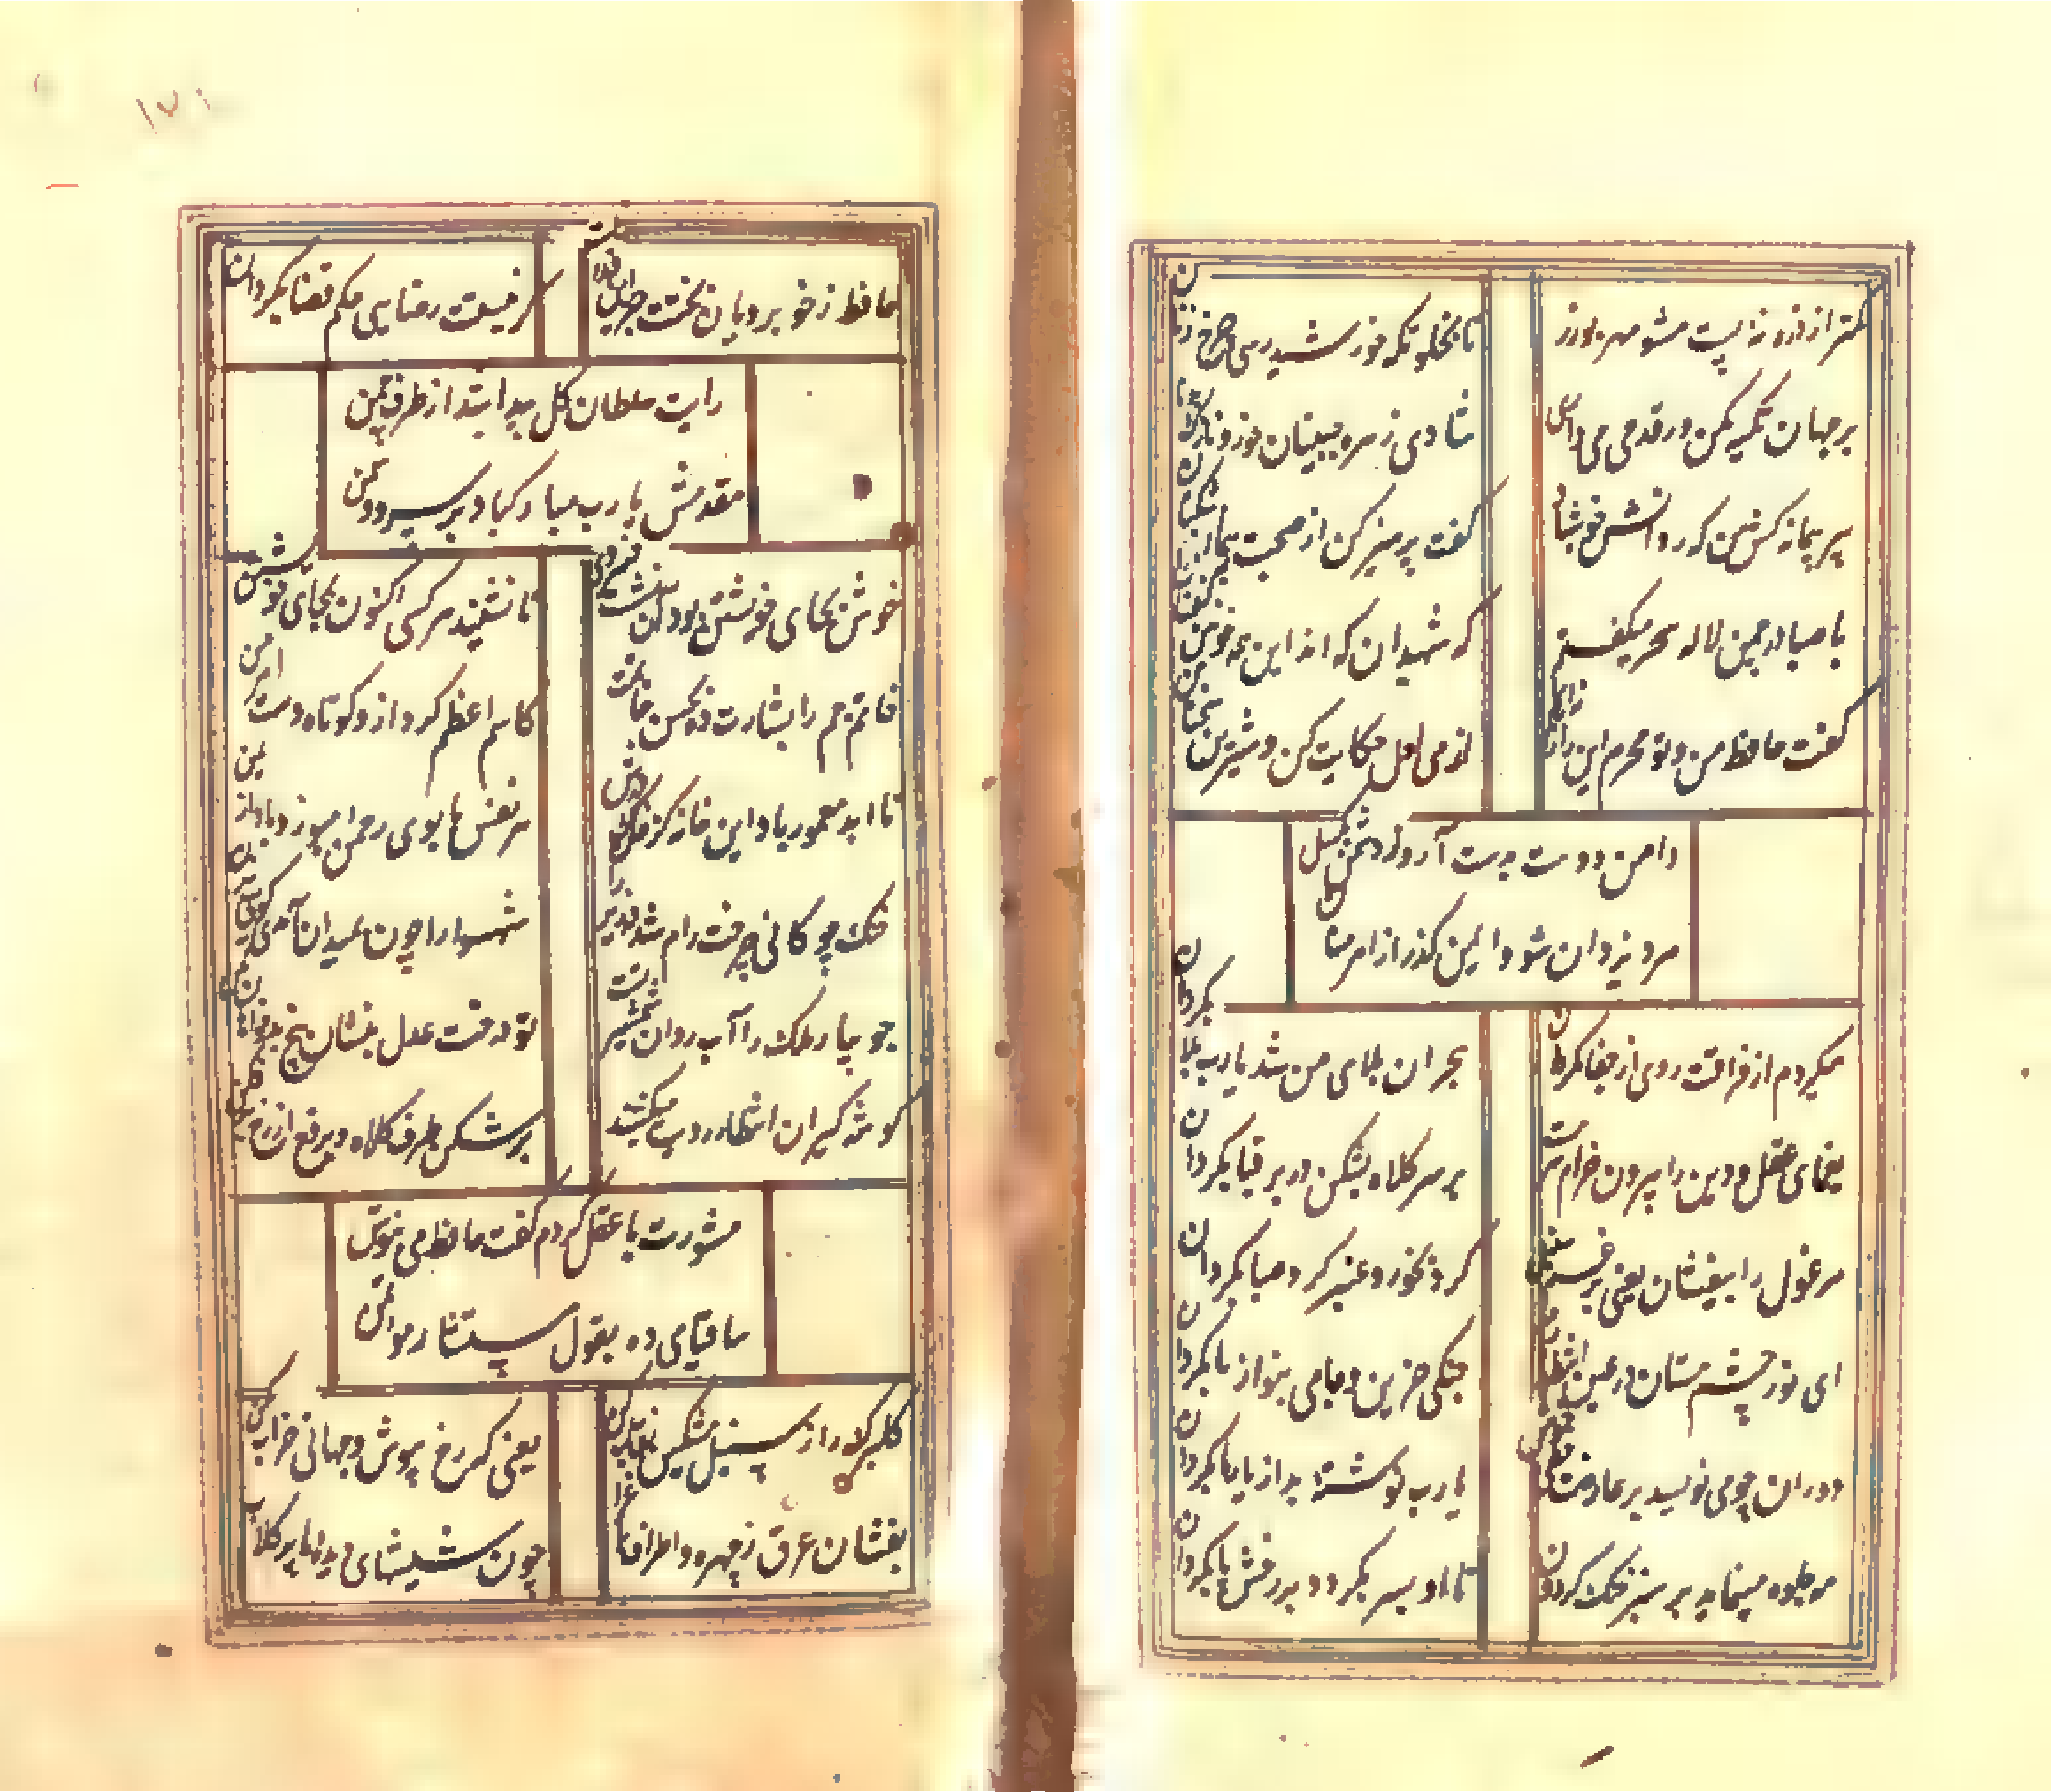 کمتر از ذره نه پست مشو مهر بورز
تا بخلوتگه خورشید رسی چرخ زنان
بر جهان تکیه مکن ور قدحی می داری
شادی زهره جبینان خور و نازک بدنان
پیر پیمانه کش من که روانش خوش باد
گفت پرهیز کن از صحبت پیمان شکنان
با صبا در چمن لاله سحر میگفتم
که شهیدان که اند این همه خونین کفنان
گفت حافظ من و تو محرم این راز نه ایم
از می لعل حکایت کن و شیرین سخنان
دامن دوست بدست آر و ز دشمن بگسل
مرد یزدان شو و ایمن گذر از اهرمنان
میگردم از فراقت روی از جفا بگردان
هجران بلای من شد یارب بلا بگردان
یغمای عقل و دین را بیرون خرام سرمست
بر سر کلاه بشکن در بر قبا بگردان
مرغول را بیفشان یعنی برغم سنبل
گرد بخور و عنبر گرد صبا بگردان
ای نور چشم مستان در عین انتظارم
چنگی حزین و جامی بنواز یا بگردان
دوران چو می نویسد بر عارضت خطی خوش
یارب نوشته بد از یار ما بگردان
مه جلوه مینماید بر سبز خنک گردون
تا او بسر بگردد بر رخش پا بگردان
حافظ ز خوبرویان بختت جز این قدر نیست
گر نیست رضایی حکم قضا بگردان
رایت سلطان گل پیدا شد از طرف چمن
مقدمش یارب مبارکباد بر سرو و سمن
خوش بجای خویشتن بود این نشست خسروی
تا نشیند هر کسی اکنون بجای خویشتن
خاتم جم را بشارت ده بحسن خاتمت
کاسم اعظم کرد ازو کوتاه دست اهرمن
تا ابد معمور باد این خانه کز خاک درش
هر نفس با بوی رحمن میوزد باد یمن
خنگ چوگانی چرخت رام شد در زیر زین
شهسوارا چون بمیدان آمدی گویی بزن
جویبار ملک را آب روان شمشیر تست
تو درخت عدل بنشان بیخ بدخواهان بکن
گوشه گیران انتظار رویت میکشند
برشکن طرف کلاه و برقع از رخ برفکن
مشورت با عقل کردم گفت حافظ می بنوش
ساقیا می ده بقول مستشار موتمن
گلبرگ را ز سنبل مشکین نقاب کن
یعنی که رخ بپوش و جهانی خراب کن
بفشان عرق ز چهره و اطراف باغ را
چون شیشهای دیده ما پر گلاب